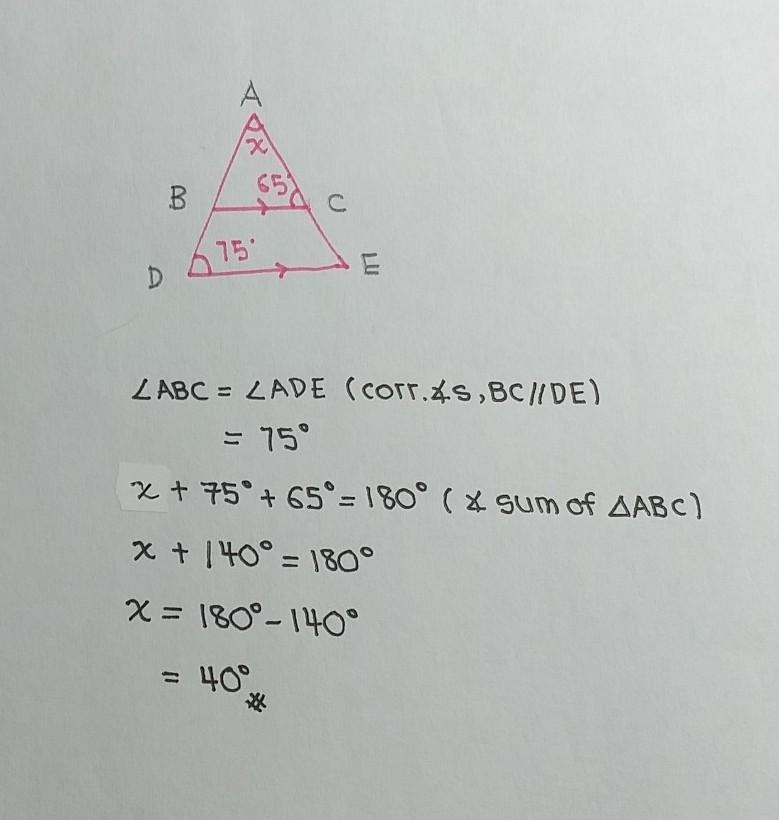 A
x
65°
B
C
75°
D
E
∠ABC = ∠ADE (corr.∡s, BC//DE)
= 75°
x + 75° + 65° = 180° (∡ sum of △ABC)
x + 140° = 180°
x = 180° - 140°
= 40° #